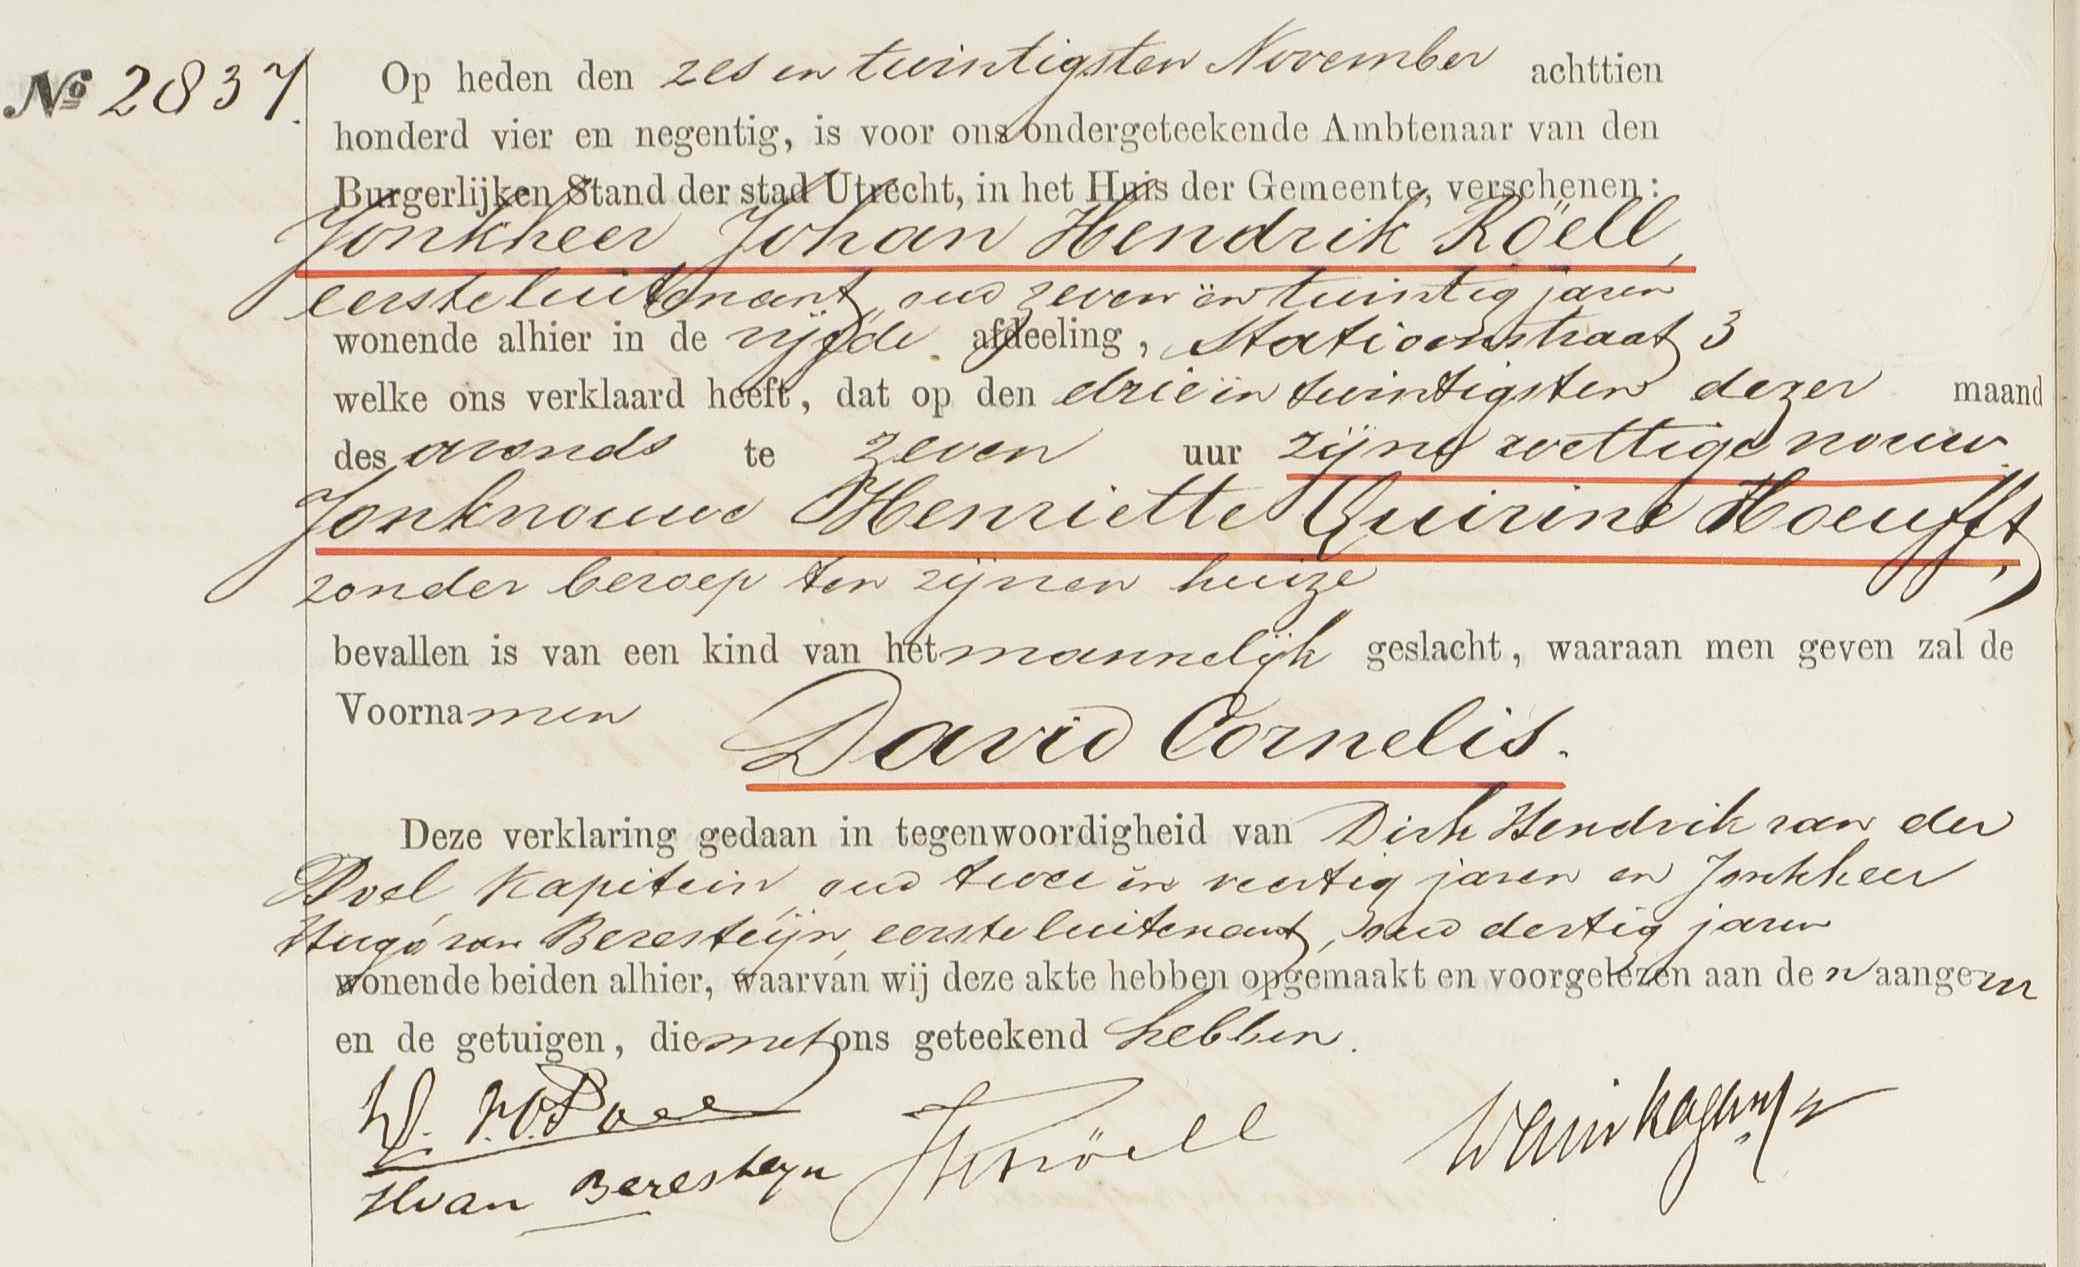 No 2837.
Op heden den zes en twintigsten November achttien
honderd vier en negentig, is voor ons ondergeteekende Ambtenaar van den
Burgerlijken Stand der stad Utrecht, in het Huis der Gemeente, verschenen:
Jonkheer Johan Hendrik Röell,
eerste luitenant, oud zeven en twintig jaren
wonende alhier in de vijfde afdeeling, Stationstraat 3
welke ons verklaard heeft, dat op den drie en twintigsten dezer maand
des avonds te zeven uur zijne wettige vrouw
Jonkvrouwe Henriette Quirine Hoeufft,
zonder beroep ten zijnen huize
bevallen is van een kind van het mannelijk geslacht, waaraan men geven zal de
Voornamen
David Cornelis.
Deze verklaring gedaan in tegenwoordigheid van Dirk Hendrik van der
Poel, Kapitein, oud twee en veertig jaren en Jonkheer
Hugo van Beresteijn, eerste luitenant, oud dertig jaren
wonende beiden alhier, waarvan wij deze akte hebben opgemaakt en voorgelezen aan den aangever
en de getuigen, die met ons geteekend hebben.
Poel
JHRöell
HvanBeresteyn